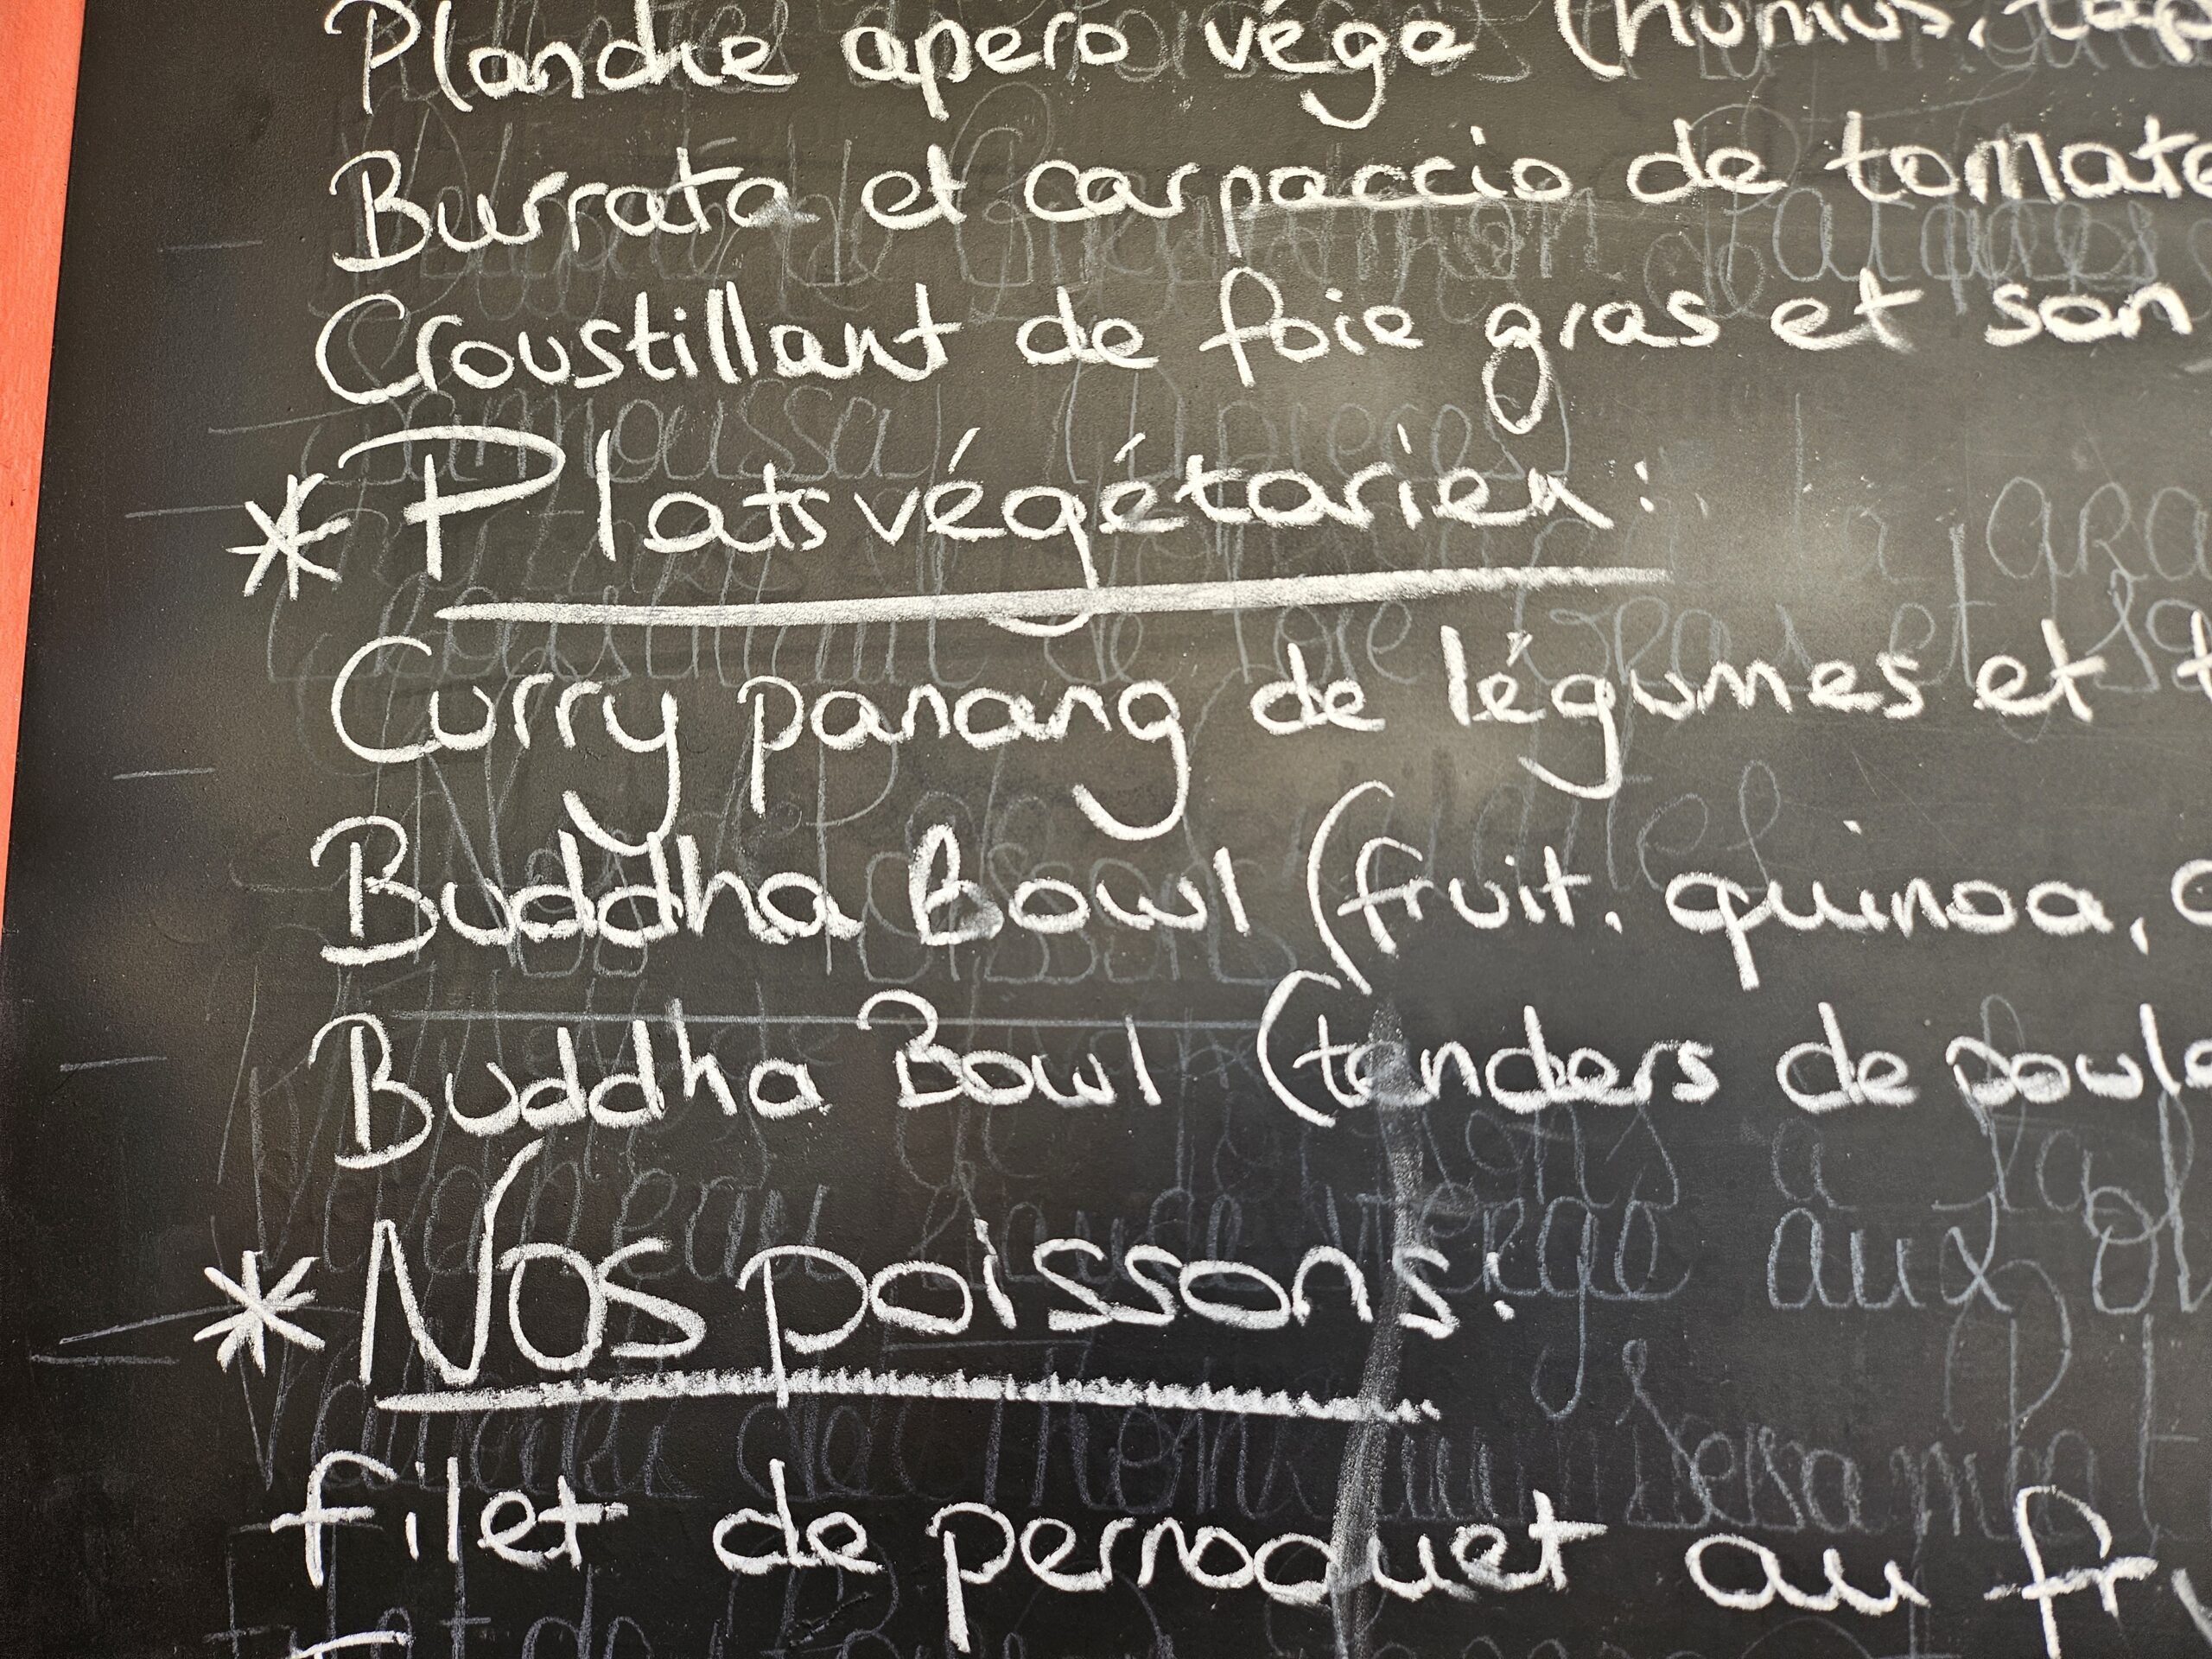 Planche apero végé (humus, tap
Burrata et carpaccio de tomate
Croustillant de foie gras et son
* Plats végétarien :
Curry panang de légumes et t
Buddha Bowl (fruit, quinoa,
Buddha Bowl (tenders de poule
* Nos poissons :
filet de perroquet au fru